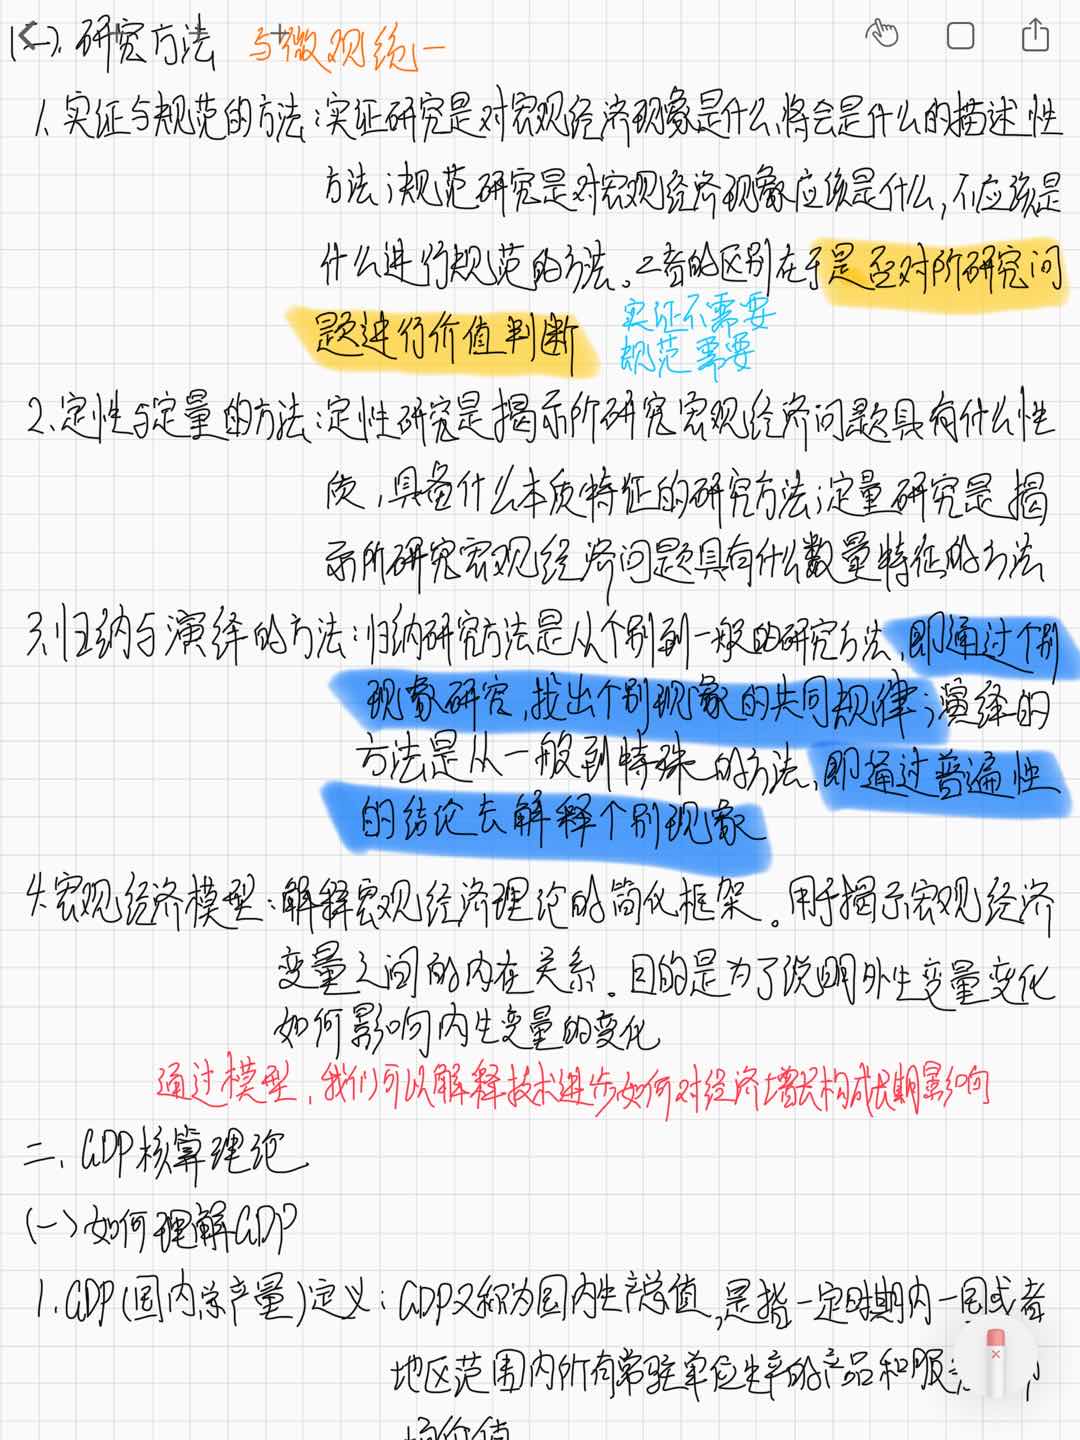 (一).研究方法 与微观统一
1、实证与规范的方法:实证研究是对宏观经济现象是什么、将会是什么的描述性
方法;规范研究是对宏观经济现象应该是什么,不应该是
什么进行规范的方法。二者的区别在于是否对所研究问
题进行价值判断
实证不需要
规范需要
2、定性与定量的方法:定性研究是揭示所研究宏观经济问题具有什么性
质,具备什么本质特征的研究方法;定量研究是揭
示所研究宏观经济问题具有什么数量特征的方法
3、归纳与演绎的方法:归纳研究方法是从个别到一般的研究方法,即通过个别
现象研究,找出个别现象的共同规律;演绎的
方法是从一般到特殊的方法,即通过普遍性
的结论去解释个别现象
4.宏观经济模型:解释宏观经济理论的简化框架。用于揭示宏观经济
变量之间的内在关系。目的是为了说明外生变量变化
如何影响内生变量的变化
通过模型,我们可以解释技术进步如何对经济增长构成长期影响
二、GDP核算理论
(一)如何理解GDP
1.GDP(国内总产量)定义:GDP又称为国内生产总值,是指一定时期内一国或者
地区范围内所有常驻单位生产的产品和服
场价值